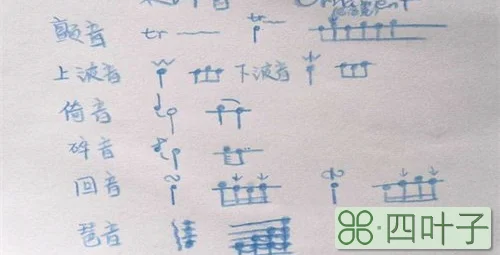 颤音 tr tr
上波音 下波音
倚音
碎音
回音
琶音
四叶子